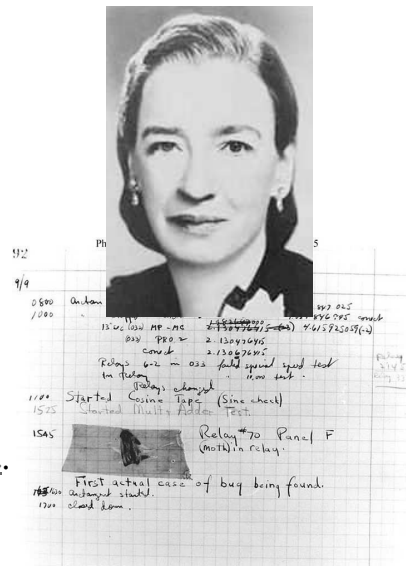 92
Ph 5
9/9
0800 Antan
1000
13"uc (032) MP-MC 2.130476415 4.615925059(-2)
(033) PRO 2 2.130476415
conect 2.130676415
Relays 6-2 in 033 failed special speed test
in Relay 10.00 test.
Relays changed
1100 Started Cosine Tape (Sine check)
1525 Started Mult+Adder Test.
1545 Relay #70 Panel F
(moth) in relay.
First actual case of bug being found.
1630 antangent started.
1700 closed down.